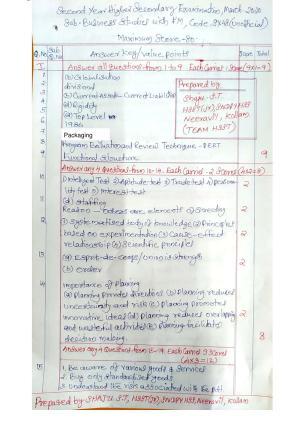 Second Year Higher Secondary Examination, March 2020
Sub- Business Studies with FM, Code 9248 (Unofficial)
Maximum Score- 80
Q.No Sub Q.No Answer Key/Value Points Score Total
I Answer all Questions from 1 to 9 Each Carries 1 Score (9x1=9)
1 (a) Globalisation
dividend
(c) Current Assets - Current Liabilities
(a) Rigidity
(a) Top Level
1986
Packaging
Program Evaluation and Review Technique - PERT
Functional Structure 9
Prepared by
Shaju. S.T
HSST(Jr), SNDPYHSS
Neeravil, Kollam
(TEAM HSST)
Answer any 4 Questions from 10-14. Each Carries - 2 Scores (4x2=8)
(1) Intelligent Test (2) Aptitude test (3) Trade test (4) Personality test (5) Interest test 2
(d) Staffing
Reason - Others are elements of Directing 2
(1) Systematised body of knowledge (2) Principles
based on experimentation (3) Cause-effect
relationship (4) Scientific principles 2
13 (a) Esprit-de-corps/Union is strength
(b) Order 2
14 Importance of Planning
(a) Planning provides directions (b) Planning reduces
uncertainity and risk (c) Planning promotes
innovative ideas (d) Planning reduces overlapping
and wasteful activities (e) Planning facilitates
decision making 2
8
Answer any 4 Questions from 15-19. Each Carries 3 Scores
(4x3=12)
15 1. Be aware of various goods & services
2. Buy only standardised goods
3. Understand the risk associated with
Prepared by SHAJU. S.T, HSST(Jr), SNDPY HSS, Neeravil, Kollam